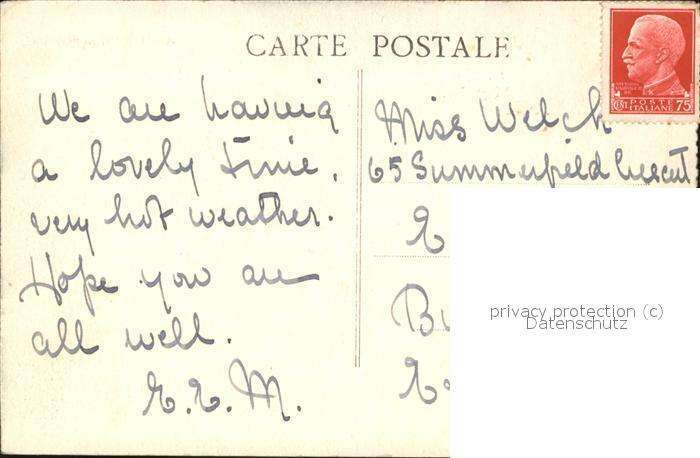 CARTE POSTALE
POSTE
ITALIANE 75
We are having
a lovely time,
very hot weather.
Hope you are
all well.
E.E.M.
Miss Welch
65 Summerfield Crescent
E
B
E
privacy protection (c)
Datenschutz